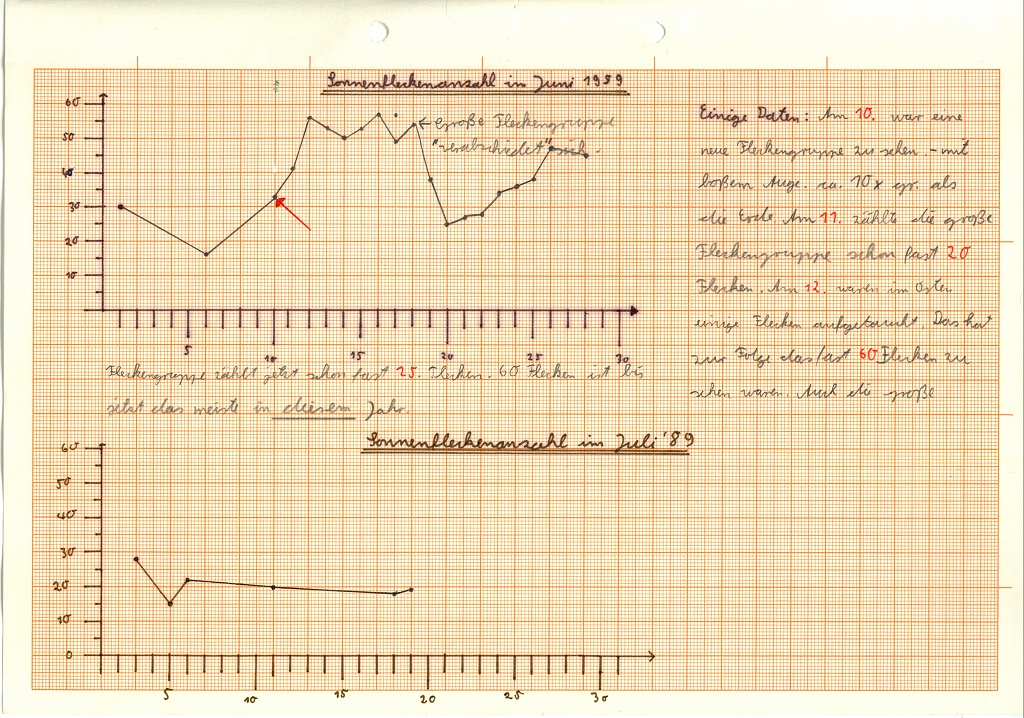 Sonnenfleckenanzahl im Juni 1989
60
50
40
30
20
10
← große Fleckengruppe
"verabschiedet" sich.
5
10
15
20
25
30
Einige Daten: Am 10. war eine
neue Fleckengruppe zu sehen. - mit
bloßem Auge. ca. 10x gr. als
die Erde. Am 11. zählte die große
Fleckengruppe schon fast 20
Flecken. Am 12. waren im Osten
einige Flecken aufgetaucht. Das hat
zur Folge das fast 60 Flecken zu
sehen waren. Auch die große
Fleckengruppe zählt jetzt schon fast 25. Flecken. 60 Flecken ist bis
jetzt das meiste in diesem Jahr.
Sonnenfleckenanzahl im Juli '89
60
50
40
30
20
10
0
5
10
15
20
25
30